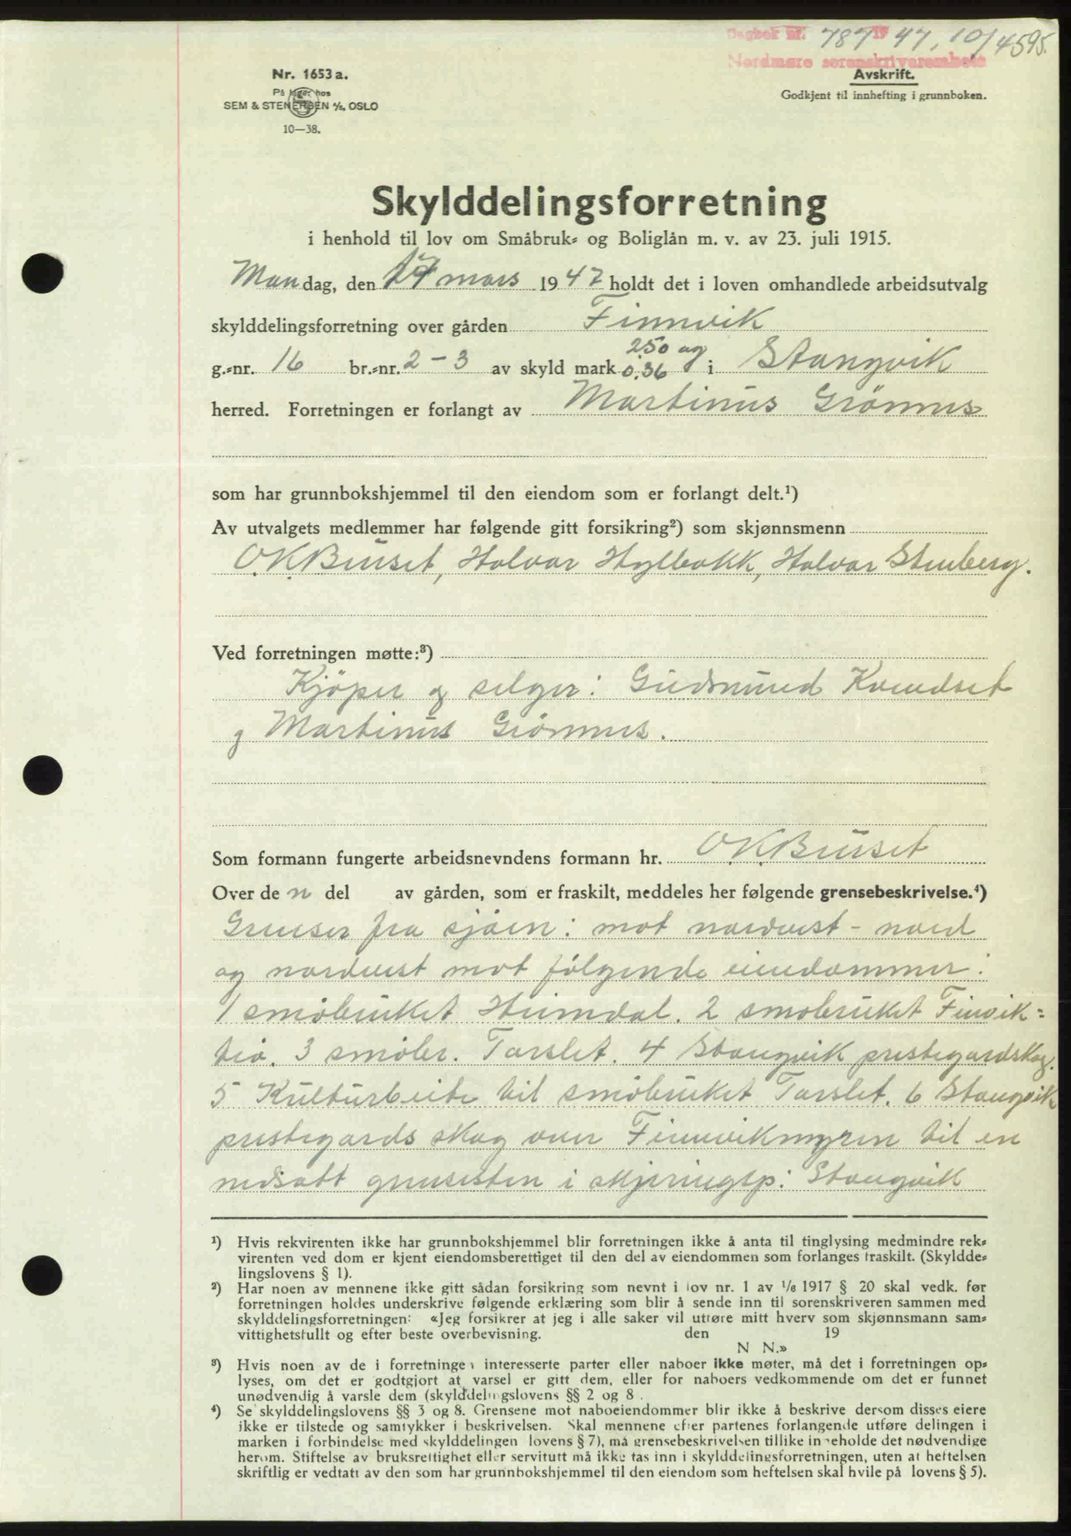 Dagbok nr. 787 19 47, 10/4 595.
Nordmøre sorenskriverembete
Nr. 1653 a.
Avskrift.
På lager hos
Godkjent til innhefting i grunnboken.
SEM & STENERSEN A/S, OSLO
10—38.
Skylddelingsforretning
i henhold til lov om Småbruk- og Boliglån m. v. av 23. juli 1915.
Mandag, den 17 mars 1947 holdt det i loven omhandlede arbeidsutvalg
skylddelingsforretning over gården Finnvik
g.-nr. 16 br.-nr. 2-3 av skyld mark 2.50 og 0.36 i Stangvik
herred. Forretningen er forlangt av Martinus Grönnes
som har grunnbokshjemmel til den eiendom som er forlangt delt.¹)
Av utvalgets medlemmer har følgende gitt forsikring²) som skjønnsmenn
O.K. Buset, Halvar Hylbakk, Halvar Stenberg.
Ved forretningen møtte:³)
Kjöper og selger: Gudmund Kvendset
og Martinus Grönnes.
Som formann fungerte arbeidsnevndens formann hr. O.K. Buset
Over de n del av gården, som er fraskilt, meddeles her følgende grensebeskrivelse.⁴)
Grenser fra sjöen: mot nordvest - nord
og nordvest mot fölgende eiendommer:
1 småbruket Heimdal. 2 småbruket Finvik-
trö. 3 småbr. Tarslet. 4 Stangvik prestegardskog.
5 Kulturbeite til småbruket Tarslet. 6 Stangvik
prestegards skog over Finnvikmyren til en
nedsatt grensesten i skjeringsp: Stangvik
¹) Hvis rekvirenten ikke har grunnbokshjemmel blir forretningen ikke å anta til tinglysing medmindre rek-
virenten ved dom er kjent eiendomsberettiget til den del av eiendommen som forlanges fraskilt. (Skyldde-
lingslovens § 1).
²) Har noen av mennene ikke gitt sådan forsikring som nevnt i lov nr. 1 av 1/6 1917 § 20 skal vedk. før
forretningen holdes underskrive følgende erklæring som blir å sende inn til sorenskriveren sammen med
skylddelingsforretningen: «Jeg forsikrer at jeg i alle saker vil utføre mitt hverv som skjønnsmann sam-
vittighetsfullt og efter beste overbevisning. den 19
N N.»
³) Hvis noen av de i forretningen interesserte parter eller naboer ikke møter, må det i forretningen op-
lyses, om det er godtgjort at varsel er gitt dem, eller for naboers vedkommende om det er funnet
unødvendig å varsle dem (skylddelingslovens §§ 2 og 8).
⁴) Se skylddelingslovens §§ 3 og 8. Grensene mot naboeiendommer blir ikke å beskrive dersom disses eiere
ikke er tilstede og samtykker i beskrivelsen. Skal mennene efter partenes forlangende utføre delingen i
marken i forbindelse med skylddelingen lovens § 7), må grensebeskrivelsen tillike inneholde det nødvendige
herom. Stiftelse av bruksrettighet eller servitutt må ikke tas inn i skylddelingsforretningen, uten at heftelsen
skriftlig er vedtatt av den som har grunnbokshjemmel til den eiendom som heftelsen skal hvile på lovens § 5).